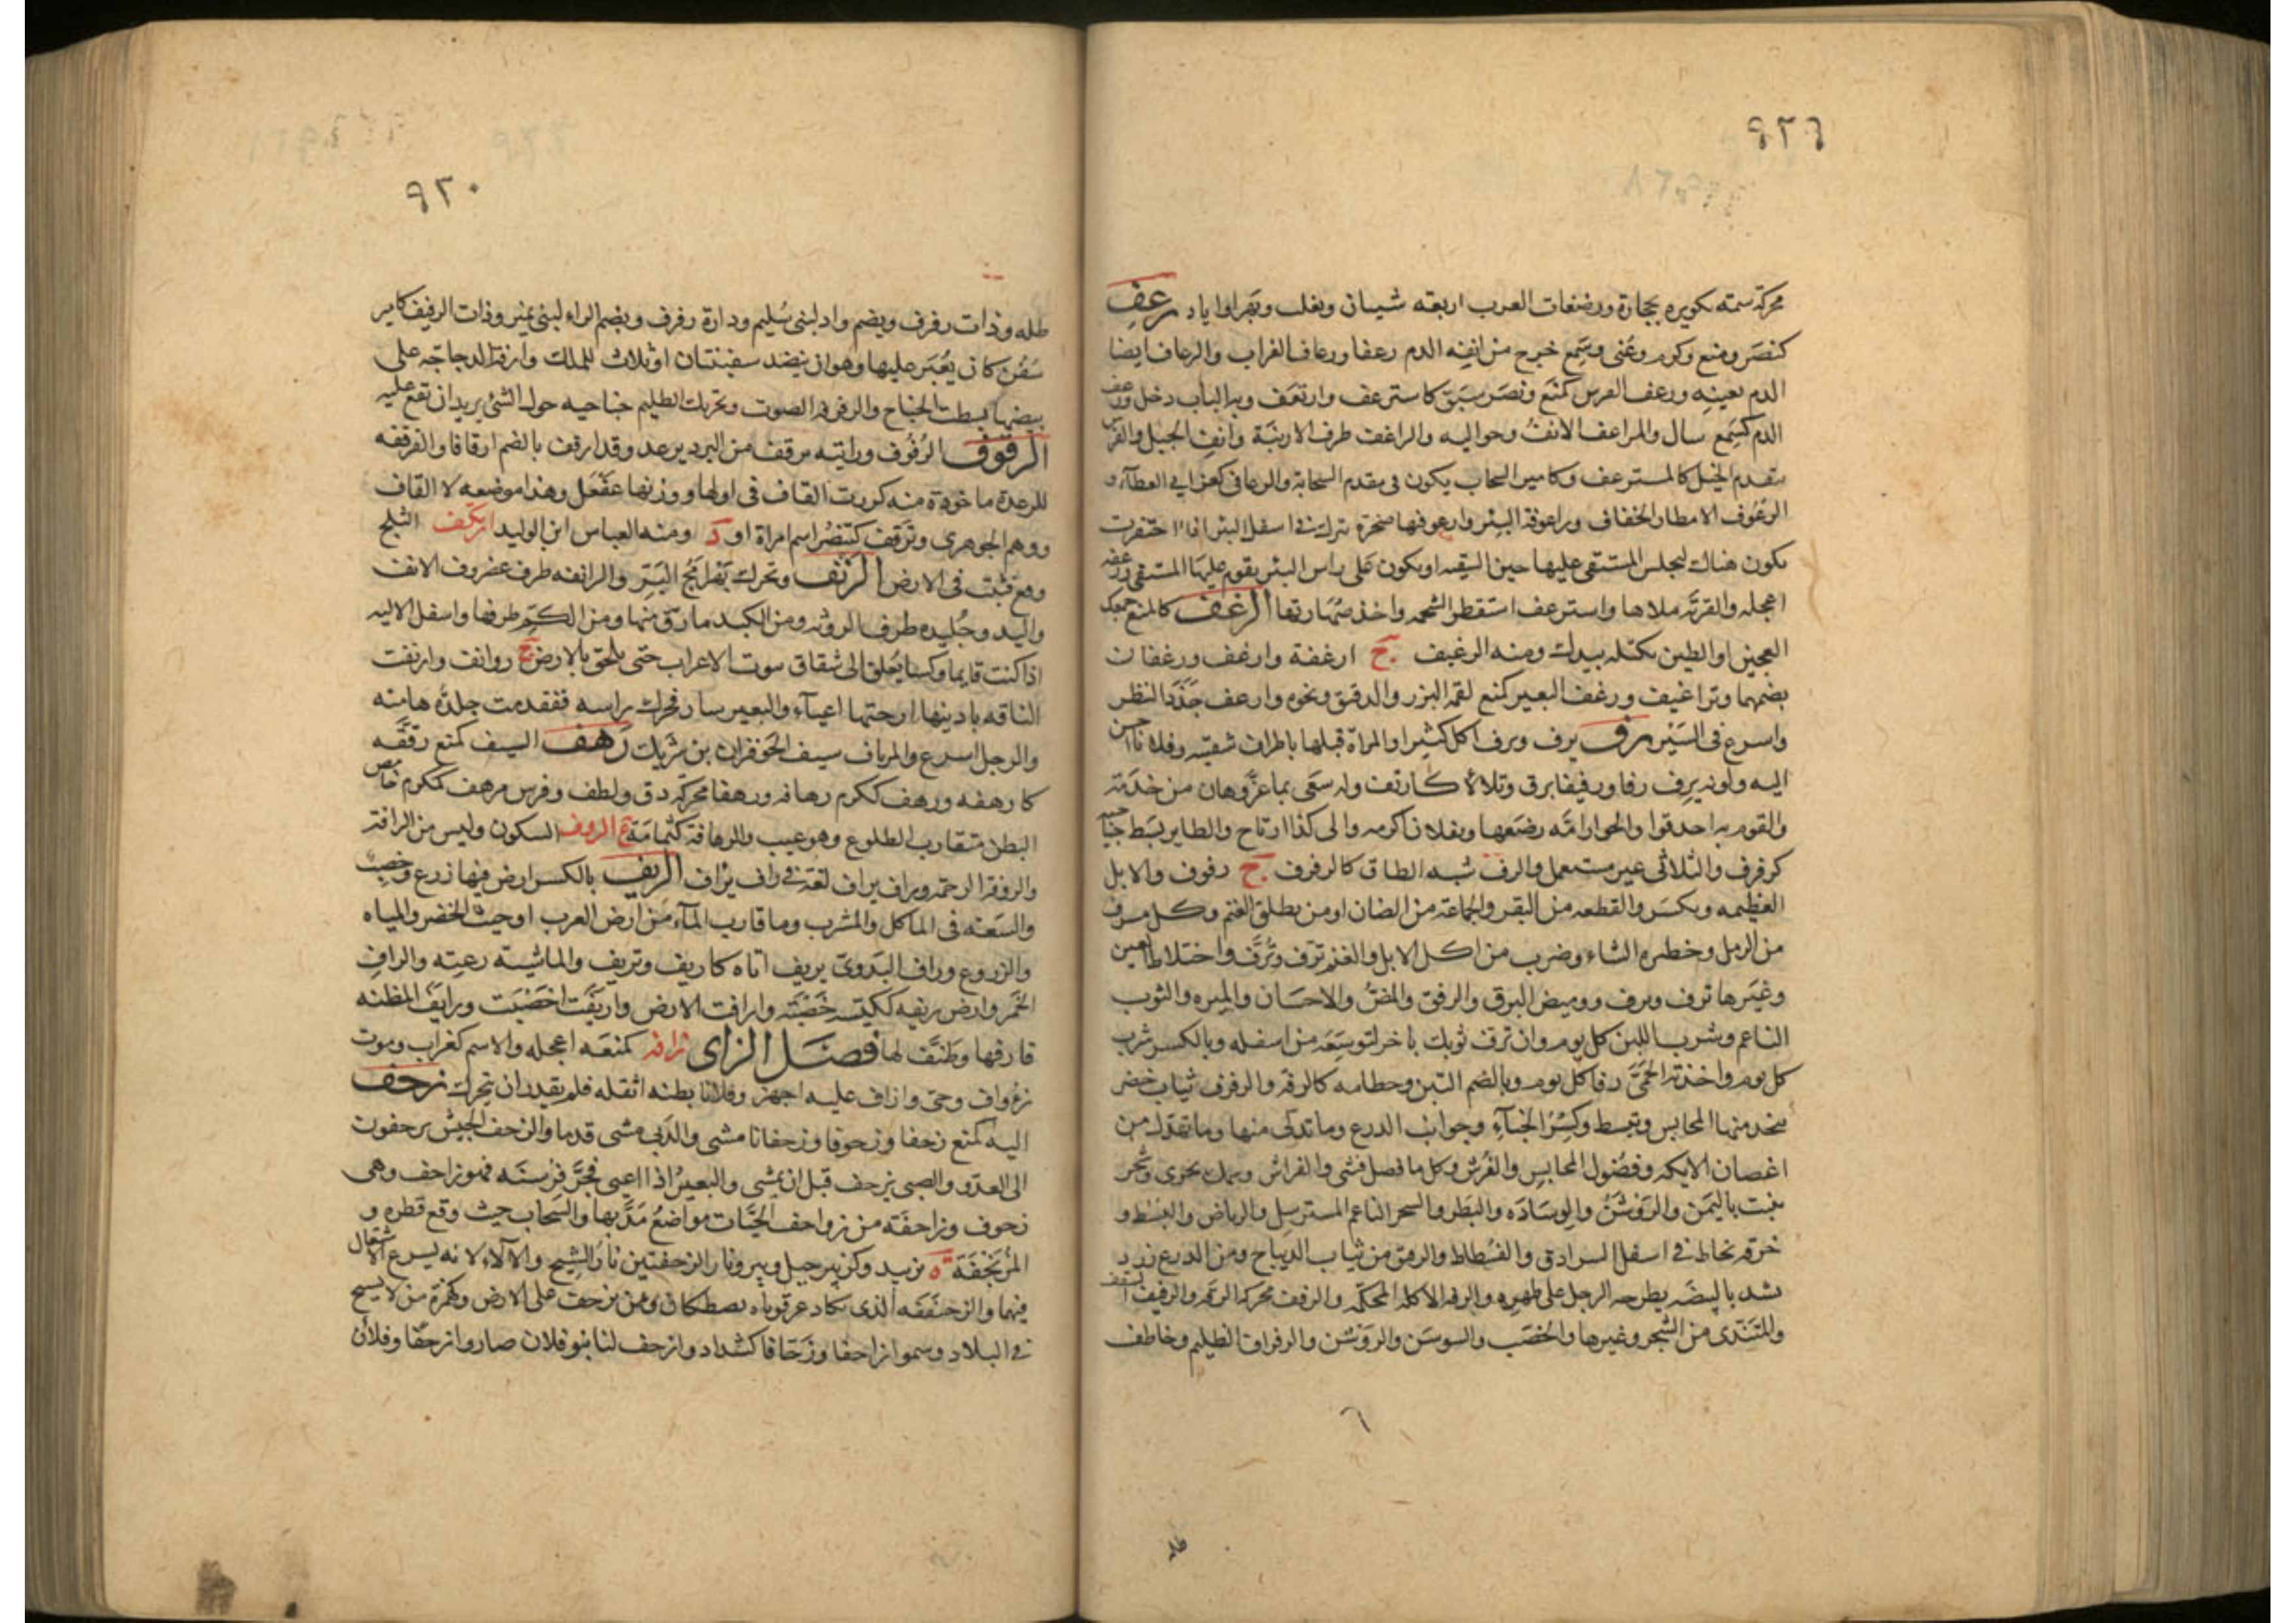 ٩٢٦
محركة سمته بكويره بحجارة ورضفات العرب اربعة شيبان وتغلب وبهراوا ياد رعف
كنصر ومنع وكرم وعنى وسمع خرج من انفه الدم رعفا ورعافا لغراب والرعاف ايضا
الدم بعينه ورعف الفرس كمنع ونصر سبق كاسترعف وارتعف وبه الباب دخل ورعف
الدم كسمع سال والمراعف الانف وحواليه والراعف طرف الارنبة وانف الجبل والفرس
يتقدم الخيل كالمسترعف وكامير السحاب يكون فى مقدم السحابة والرعافى كغرابى العطآء و
الرعوف الامطار الخفاف وراعوفة البئر وارعوفها صخرة تترك فى اسفل البئر اذا احتفرت
تكون هناك ليجلس المستقى عليها حين التنقيه او يكون على راس البئر يقوم عليها المستقى ورعفه
اعجله والقربة ملاها واسترعف استقطر الشحمه واخذ صهارتها الرغف كالمنع جمعك
العجين او الطين تكتله بيدك ومنه الرغيف ج ارغفة وارغف ورغفان
بضمهما وتراغيف ورغف البعير كمنع لقمه البزر والدقيق ونحوه وارغف حدد النظر
واسرع فى السير رف يرف ويرف اكل كثيرا والمراة قبلها باطراف شفتيه وفلانا احسن
اليه ولونه يرف رفا ورفيفا برق وتلالأ كارتف وله سعى بما عز وهان من خدمته
والقوم به احدقوا والحوار امه رضعها وبفلان اكرمه والى كذا ارتاح والطاير بسط جناحيه
كرفرف والثلاثى غير مستعمل والرف شبه الطاق كالرفرف ج رفوف والابل
العظيمه ويكسر والقطعه من البقر والجماعة من الضان او من مطلق الغنم وكل مشرف
من الرمل وحظيره الشاء وضرب من اكل الابل والغنم ترف وترف واختلاط العين
وغيرها ترف ويرف ووميض البرق والرفق والمص والاحسان والميره والثوب
الناعم وشرب اللبن كل يوم وان ترف ثوبك باخر لتوسعه من اسفله وبالكسر شرب
كل يوم واخذته الحمى رفا كل يوم وبالضم التبن وحطامه كالرفه والرفرف ثياب خضر
تتخذ منها المحابس وتبسط وكسر الخبآء وجوانب الدرع وما تدلى منها وما تهدل من
اغصان الايكه وفضول المحابس والفرش وكل ما فضل فثنى والفراش وسمك بحرى وشجر
ينبت باليمن والروشن والوسادة والبظر والشجر الناعم المسترسل والرياض والبسط و
خرقه تخاط فى اسفل السرادق والفسطاط والرقيق من ثياب الديباج ومن الدرع زرد
يشد بالبيضه يطرحه الرجل على ظهره والرفه الاكله المحكمه والرفف محركة الرقه والرفيف السقف
والمتندى من الشجر وغيرها والخصب والسوسن والروشن والرفراف الظليم وخاطف
٦
ظله
٩٢٠
ظله وذات رفرف ويضم واد لبنى سليم ودارة رفرف ويضم الراء لبنى نمير وذات الرفيف كامير
سفن كان يعبر عليها وهو ان ينضد سفينتان او ثلاث للملك وارفت الدجاجة على
بيضها بسطت الجناح والرفرفه الصوت وتحريك الظليم جناحيه حول الشئ يريد ان تقع عليه
الرقوف الرفوف ورايته يرقف من البرد يرعد وقد ارقف بالضم ارقافا والقرقفه
للرعدة ماخوذة منه كررت القاف فى اولها ووزنها عفعل وهذا موضعه لا القاف
ووهم الجوهرى وترقف كتنصر اسم امراة او د ومنه العباس ابن الوليد ارتكف الثلج
وقع فثبت فى الارض الرنف ويحرك بهرامج البر والرانفه طرف غضروف الانف
واليد وجليده طرف الروثه ومن الكبد مارق منها ومن الكم طرفها واسفل الاليه
اذا كنت قايما وكسا يعلق الى شقاق بيوت الاعراب حتى يلحق بالارض ج روانف وارنفت
الناقه باذنيها ارختهما اعيآء والبعير سار فحرك براسه فتقدمت جلدة هامته
والرجل اسرع والمرناف سيف الحوفزان بن شريك رهف السيف كمنع رققه
كارهفه ورهف ككرم رهافه ورهفا محركة دق ولطف وفرس مرهف كمكرم خامص
البطن متقارب الضلوع وهو عيب والرهافة كثمامة ع الروف السكون وليس من الرافة
والروفة الرحمة وراف يراف لغة فى راف يراف الريف بالكسر ارض فيها زرع وخصب
والسعة فى الماكل والمشرب وما قارب المآء من ارض العرب او حيث الخضر والمياه
والزروع وراف البدوى يريف اتاه كاريف وتريف والماشية رعته والراف
الخمر وارض ريفه ككيسه خصبة وارافت الارض واريفت اخصبت ورايف المظنه
قارفها وطنف لها فصل الزاى زافه كمنعه اعجله والاسم كغراب وموت
زؤاف وحى وازاف عليه اجهز وفلانا بطنه اثقله فلم يقدر ان يتحرك زحف
اليه كمنع زحفا وزحوفا وزحفانا مشى والدبى مشى قدما والزحف الجيش يزحفون
الى العدو والصبى يزحف قبل ان يمشى والبعير اذا اعيى فجر فرسنه فهو زاحف وهى
زحوف وزاحفة من زواحف الحيات مواضع مدبها والسحاب حيث وقع قطره و
المزيحفة ة بزبيد وكزبير جبل وبير ونار الزحفتين نار الشيح والالآء لانه يسرع الاشتعال
فيهما والزحنقفه الذى تكاد عرقوباه يصطكان ومن يزحف على الارض وكهمزة من لا يسيح
فى البلاد وسموا زاحفا وزحافا كشداد وازحف لنا بنو فلان صاروا زحفا وفلان